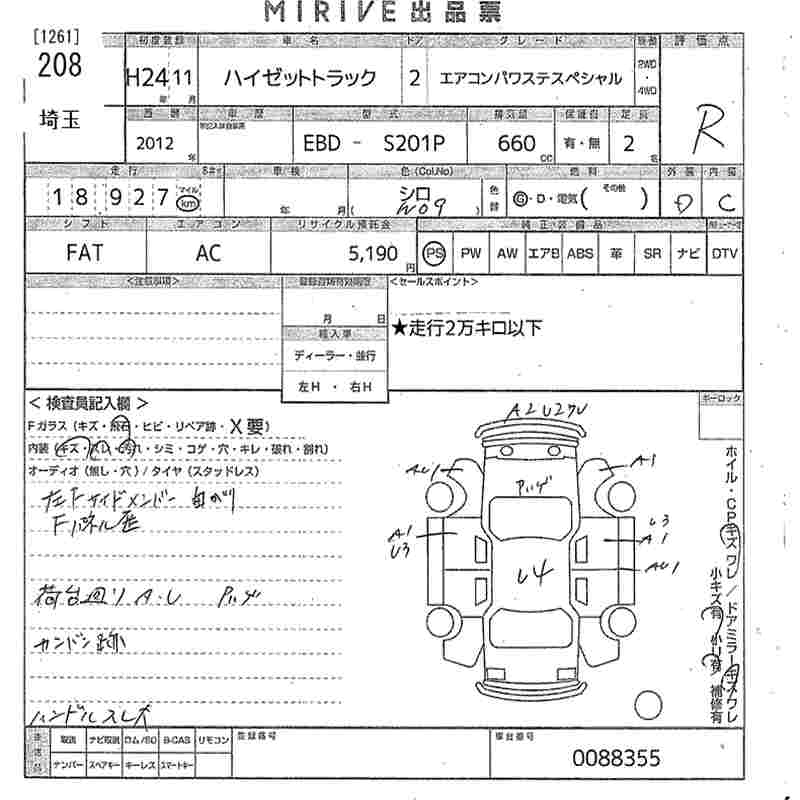 MIRIVE出品票
[1261]
208
埼玉
初度登録 車名 ドア グレード 駆動 評価点
H24 11 年 月 ハイゼットトラック 2 エアコンパワステスペシャル 2WD・4WD R
西暦 車歴 型式 排気量 保証書 定員
2012 年 EBD - S201P 660 CC 有・無 2 名
走行 車検 色(Col,No) 燃料 外装 内装
18927 マイル km 年 月 シロ W09 色替 G・D・電気( その他 ) D C
シフト エアコン リサイクル預託金 純正装備品
FAT AC 5,190 円 PS PW AW エアB ABS 革 SR ナビ DTV
<注意事項> 登録書類有効期限 <セールスポイント>
月 日
★走行2万キロ以下
輸入車
ディーラー・並行
左H ・ 右H
<検査員記入欄> ボーローック
Fガラス(キズ・飛石・ヒビ・リペア跡・X要)
内装(キズ・スレ・汚れ・シミ・コゲ・穴・キレ・破れ・割れ)
オーディオ(無し・穴)/タイヤ(スタッドレス)
左Fサイドメンバー 曲がり
Fパネル歪
荷台廻りA・U
カンバン跡
ハンドルスレ大
A2U2
AU1
A1
A1
U3
U3
A1
AU1
U4
ホイル・CPキズワレ/ドアミラーキズワレ
小キズ有 小U有 補修有
取説 ナビ取説 ロム/SD B-CAS リモコン 登録番号 車台番号
ナンバー スペアキー キーレス スマートキー
0088355